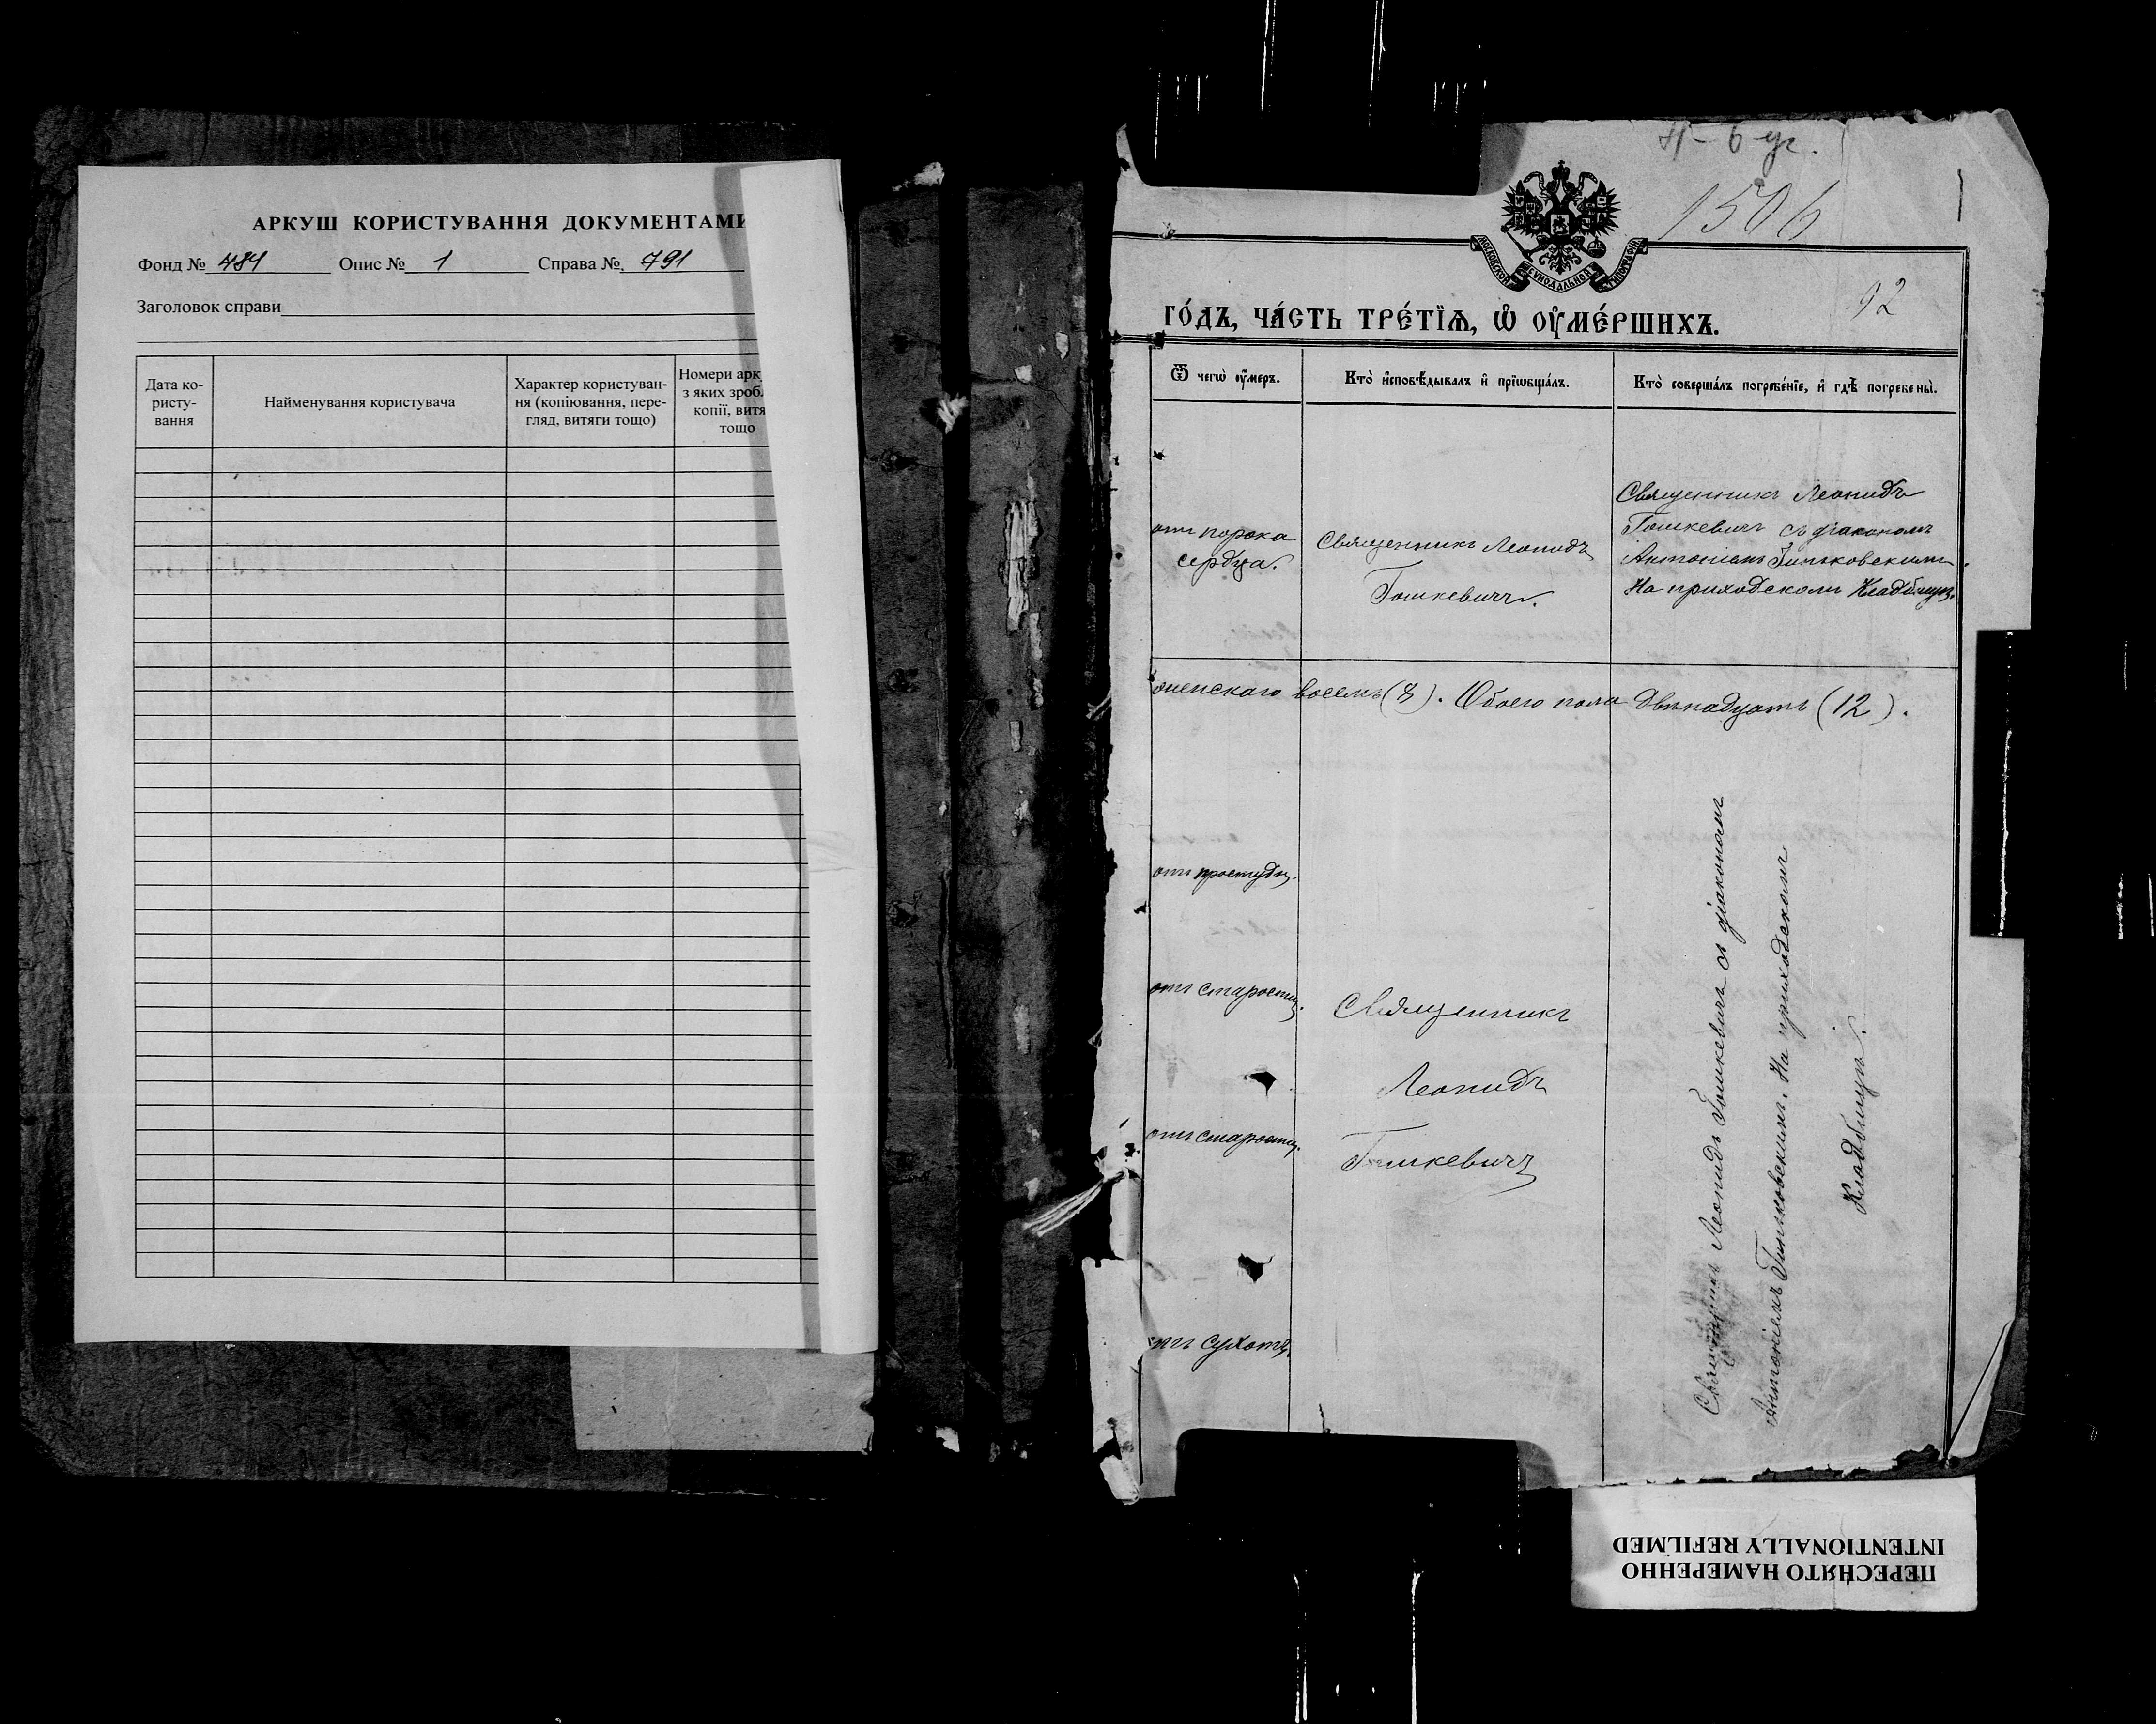 АРКУШ КОРИСТУВАННЯ ДОКУМЕНТАМИ
Фонд № 484 Опис № 1 Справа № 791
Заголовок справи
Дата ко-
ристу-
вання
Найменування користувача
Характер користуван-
ня (копіювання, пере-
гляд, витяги тощо)
Номери арк
з яких зроб
копії, витя
тощо
1506
92
МОСКОВСКОЙ СѴНОДАЛЬНОЙ ТИПОГРАФІИ
ГО́ДЪ, ЧА́СТЬ ТРЕ́ТЇѦ, Ѡ҆ ОУ҆МЕ́РШИХЪ.
Ѿ чегѡ̀ оу҆́меръ.
Кто̀ и҆сповѣ́дывалъ и҆ прїѡбща́лъ.
Кто̀ соверша́лъ погребе́нїе, и҆ гдѣ̀ погребены̀.
отъ порока
сердца.
Священникъ Леонидъ
Гошкевичъ.
Священникъ Леонидъ
Гошкевичъ съ діакономъ
Антоніемъ Гиньковскимъ
На приходскомъ Кладбищѣ.
женскаго восемь (8). Обоего пола двѣнадцать (12).
отъ простуды.
отъ старости.
отъ старости.
отъ сухоты.
Священникъ
Леонидъ
Гошкевичъ
Священникъ Леонидъ Гошкевичъ съ діакономъ
Антоніемъ Гиньковскимъ. На приходскомъ
Кладбищѣ.
ПЕРЕСНЯТО НАМЕРЕННО
INTENTIONALLY REFILMED